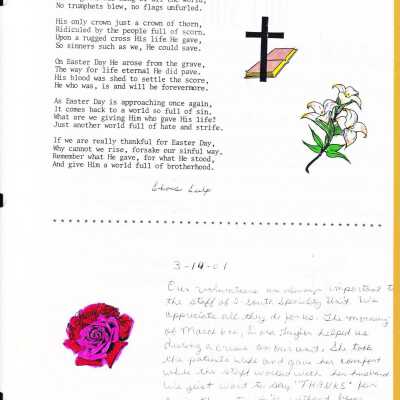 No trumphets blew, no flags unfurled.
His only crown just a crown of thorn,
Ridiculed by the people full of scorn.
Upon a rugged cross His life He gave,
So sinners such as we, He could save.
On Easter Day He arose from the grave,
The way for life eternal He did pave.
His blood was shed to settle the score,
He who was, is and will be forevermore.
As Easter Day is approaching once again,
It comes back to a world so full of sin.
What are we giving Him who gave His life?
Just another world full of hate and strife.
If we are really thankful for Easter Day,
Why cannot we rise, forsake our sinful way.
Remember what He gave, for what He stood,
And give Him a world full of brotherhood.
3-19-01
Our volunteers are always important to
the staff of 2-South Specialty Unit. We
appreciate all they do for us. The morning
of March helped us
during a crisis on our unit. She took
the patients wife and gave her comfort
while the staff worked with her husband.
We just want to say "THANKS" for